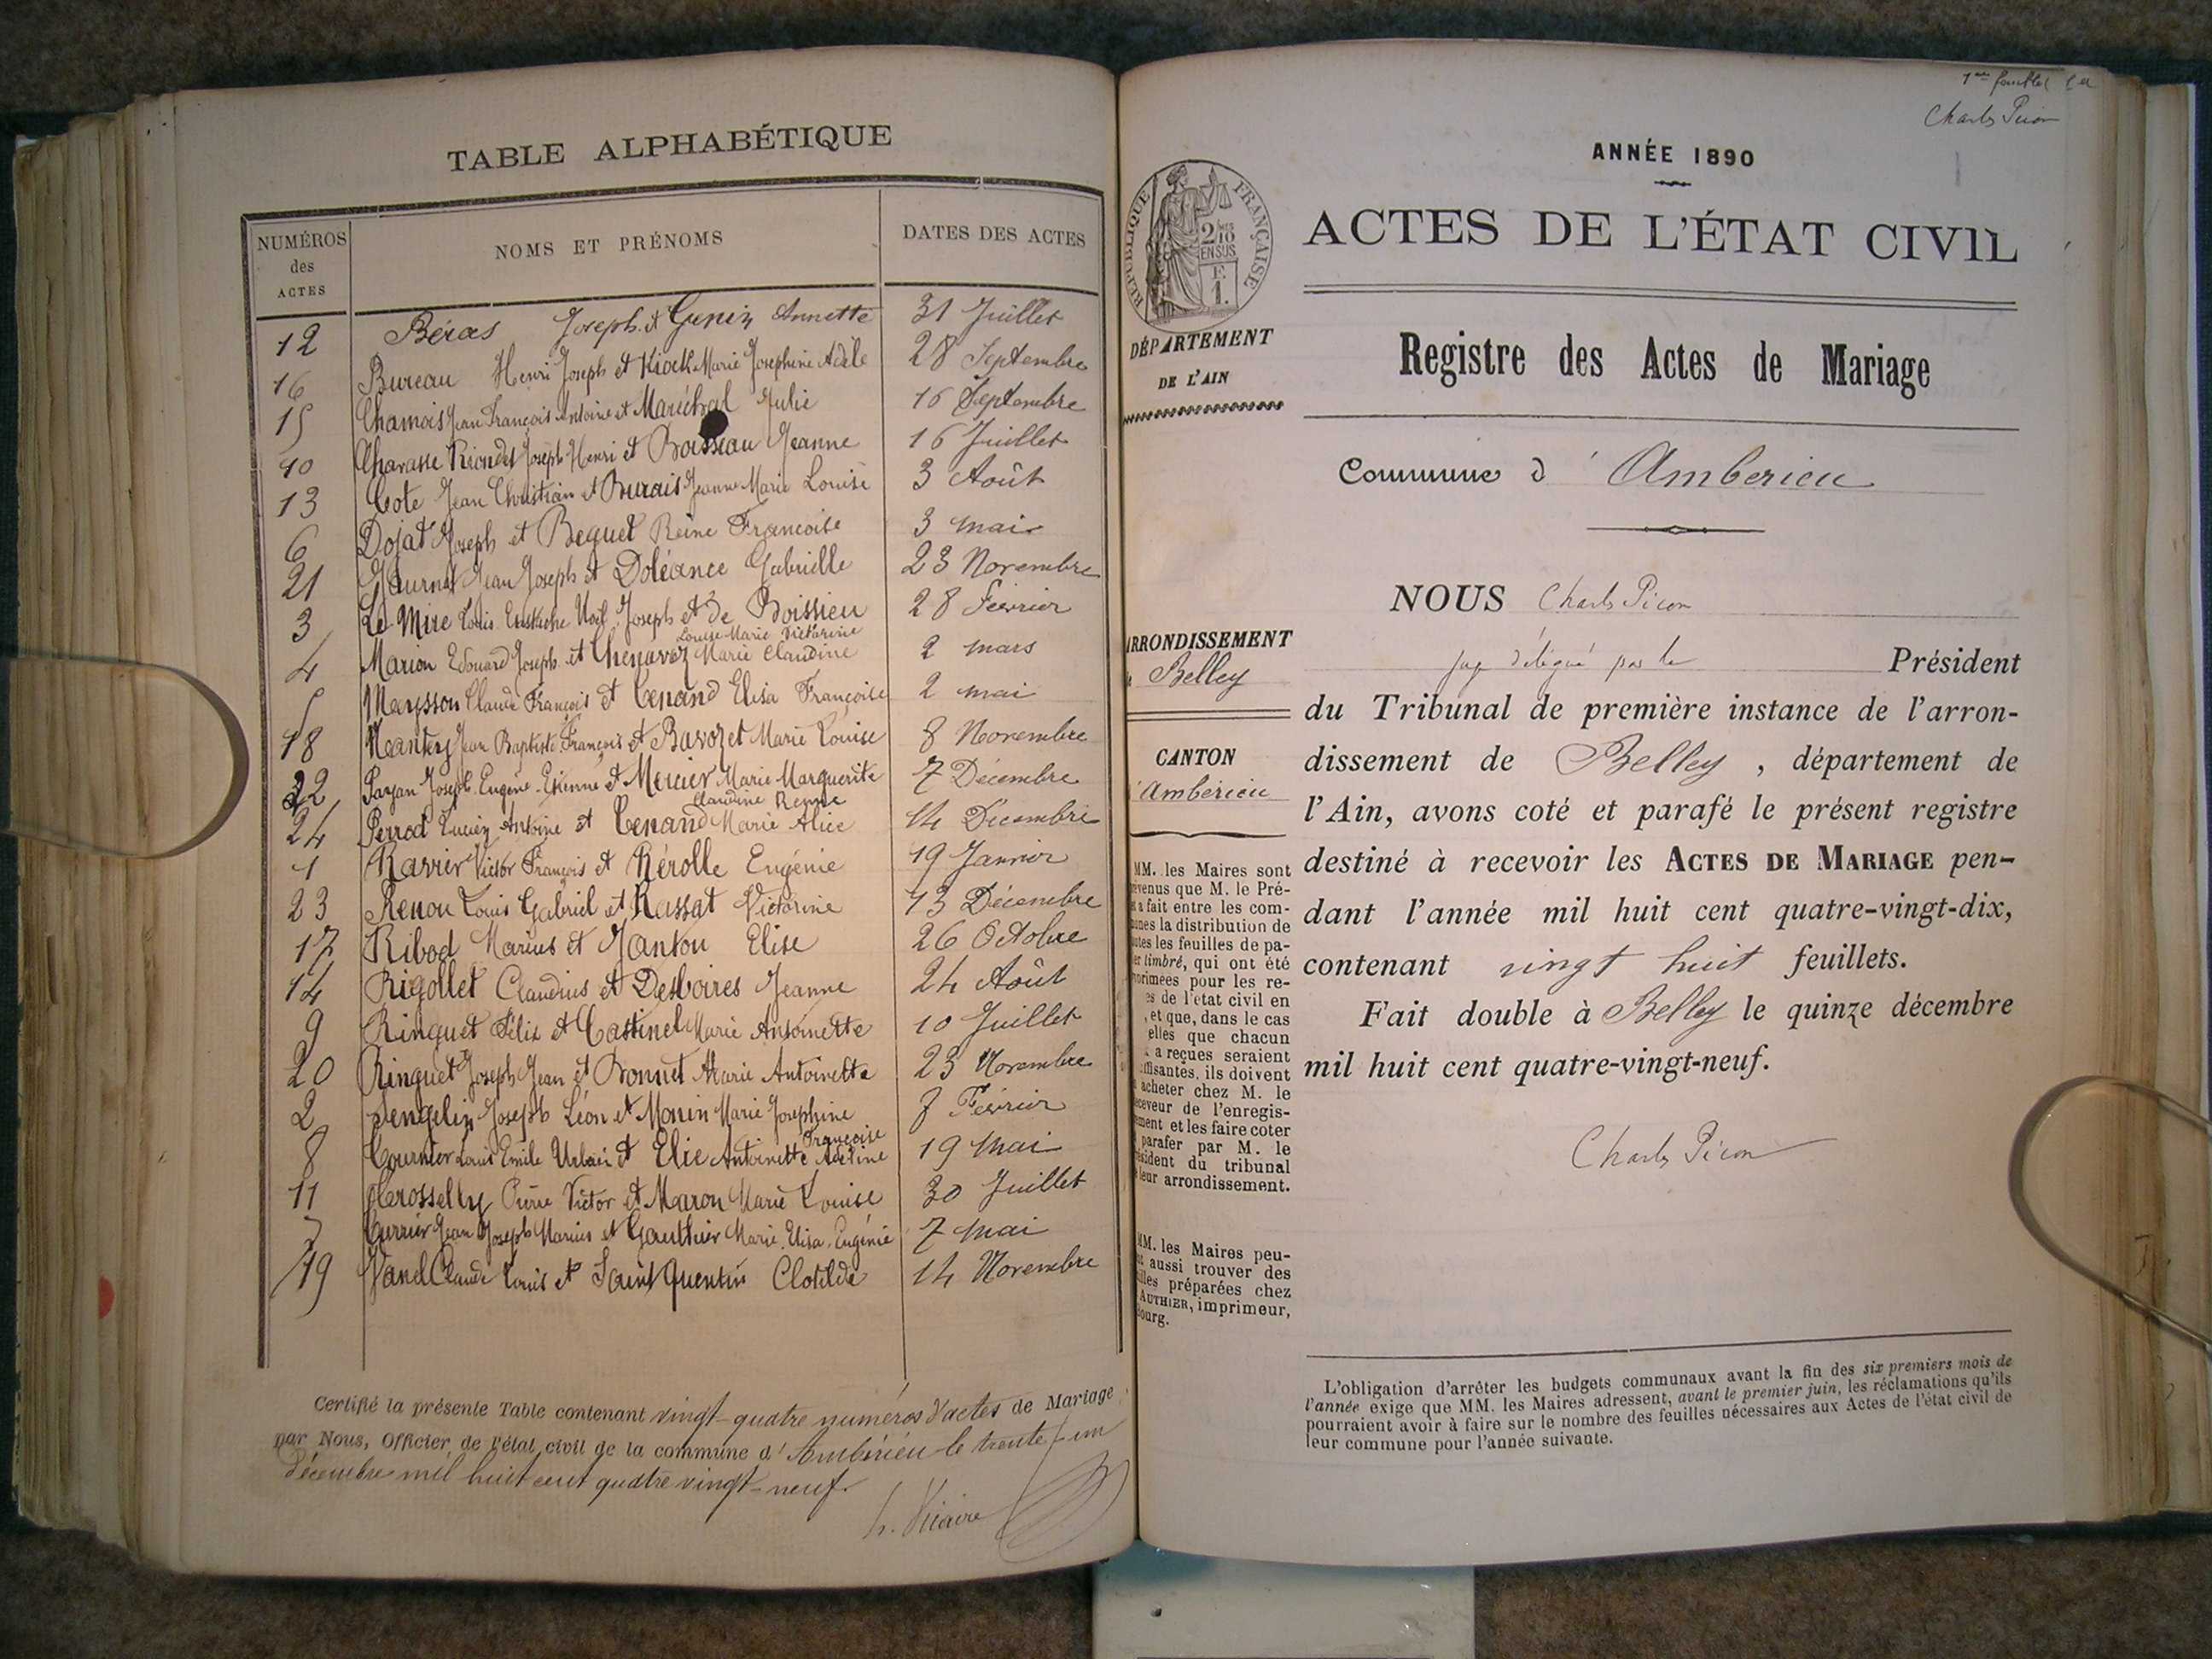 TABLE ALPHABÉTIQUE
NUMÉROS des ACTES
NOMS ET PRÉNOMS
DATES DES ACTES
12 Béras Joseph et Genin Annette 31 Juillet
16 Bureau Henri Joseph et Marie Josephine Adèle 28 Septembre
15 Chamois Jean François Antoine et Maréchal Julie 16 Septembre
10 Charasse Riondet Joseph Henri et Boisseau Jeanne 16 Juillet
13 Cote Jean Christian et Burais Jeanne Marie Louise 3 Août
6 Dojat Joseph et Beguet Reine Françoise 3 mai
21 Jean Joseph et Doléance Gabrielle 23 Novembre
3 Le Mire Louis Noël Joseph et de Boissieu 28 Fevrier
Louise Marie Victorine
4 Marion Edouard Joseph et Chenavaz Marie Claudine 2 mars
5 Claude François et Tenand Elisa Françoise 2 mai
18 Nantey Jean Baptiste François et Bavozet Marie Louise 8 Novembre
22 Payan Joseph Eugène Etienne et Mercier Marie Marguerite 7 Décembre
Claudine
24 Perrod Lucien Antoine et Tenand Marie Alice 14 Décembre
1 Ravier Victor François et Rérolle Eugénie 19 Janvier
23 Renou Louis Gabriel et Rassat Victorine 13 Décembre
17 Ribod Marius et Janton Elise 26 Octobre
14 Rigollet Claudius et Desboires Jeanne 24 Août
9 Ringuet Félix et Castinel Marie Antoinette 10 Juillet
20 Ringuet Joseph Jean et Bonnet Marie Antoinette 23 Novembre
2 Sengelin Joseph Léon et Monin Marie Josephine Février
Françoise
8 Tournier Louis Emile Urbain et Elie Antoinette 19 mai
11 Pierre Victor et Maron Marie Louise 30 Juillet
7 Jean Joseph Marius et Gauthier Marie Elisa Eugénie 7 mai
19 Vanel Claude Louis et Saint Quentin Clotilde 14 Novembre
Certifié la présente Table contenant vingt-quatre numéros d'actes de Mariage
par Nous, Officier de l'état civil de la commune d'Ambérieu le trente-un
décembre mil huit cent quatre vingt-neuf.
h. Vicaire
Charles Picon
ANNÉE 1890
RÉPUBLIQUE FRANÇAISE
2/10
EN SUS
F.
1.
ACTES DE L'ÉTAT CIVIL
DÉPARTEMENT
DE L'AIN
Registre des Actes de Mariage
Commune d'Amberieu
NOUS Charles Picon
juge délégué par le Président
du Tribunal de première instance de l'arron-
dissement de Belley, département de
l'Ain, avons coté et parafé le présent registre
destiné à recevoir les ACTES DE MARIAGE pen-
dant l'année mil huit cent quatre-vingt-dix,
contenant vingt huit feuillets.
Fait double à Belley le quinze décembre
mil huit cent quatre-vingt-neuf.
Charles Picon
ARRONDISSEMENT
Belley
CANTON
d'Amberieu
MM. les Maires sont
que M. le Pré-
a fait entre les com-
la distribution de
les feuilles de pa-
timbré, qui ont été
pour les re-
de l'état civil en
, et que, dans le cas
elles que chacun
a reçues seraient
, ils doivent
acheter chez M. le
de l'enregis-
et les faire coter
parafer par M. le
du tribunal
leur arrondissement.
MM. les Maires peu-
aussi trouver des
préparées chez
AUTHIER, imprimeur,
L'obligation d'arrêter les budgets communaux avant la fin des six premiers mois de
l'année exige que MM. les Maires adressent, avant le premier juin, les réclamations qu'ils
pourraient avoir à faire sur le nombre des feuilles nécessaires aux Actes de l'état civil de
leur commune pour l'année suivante.